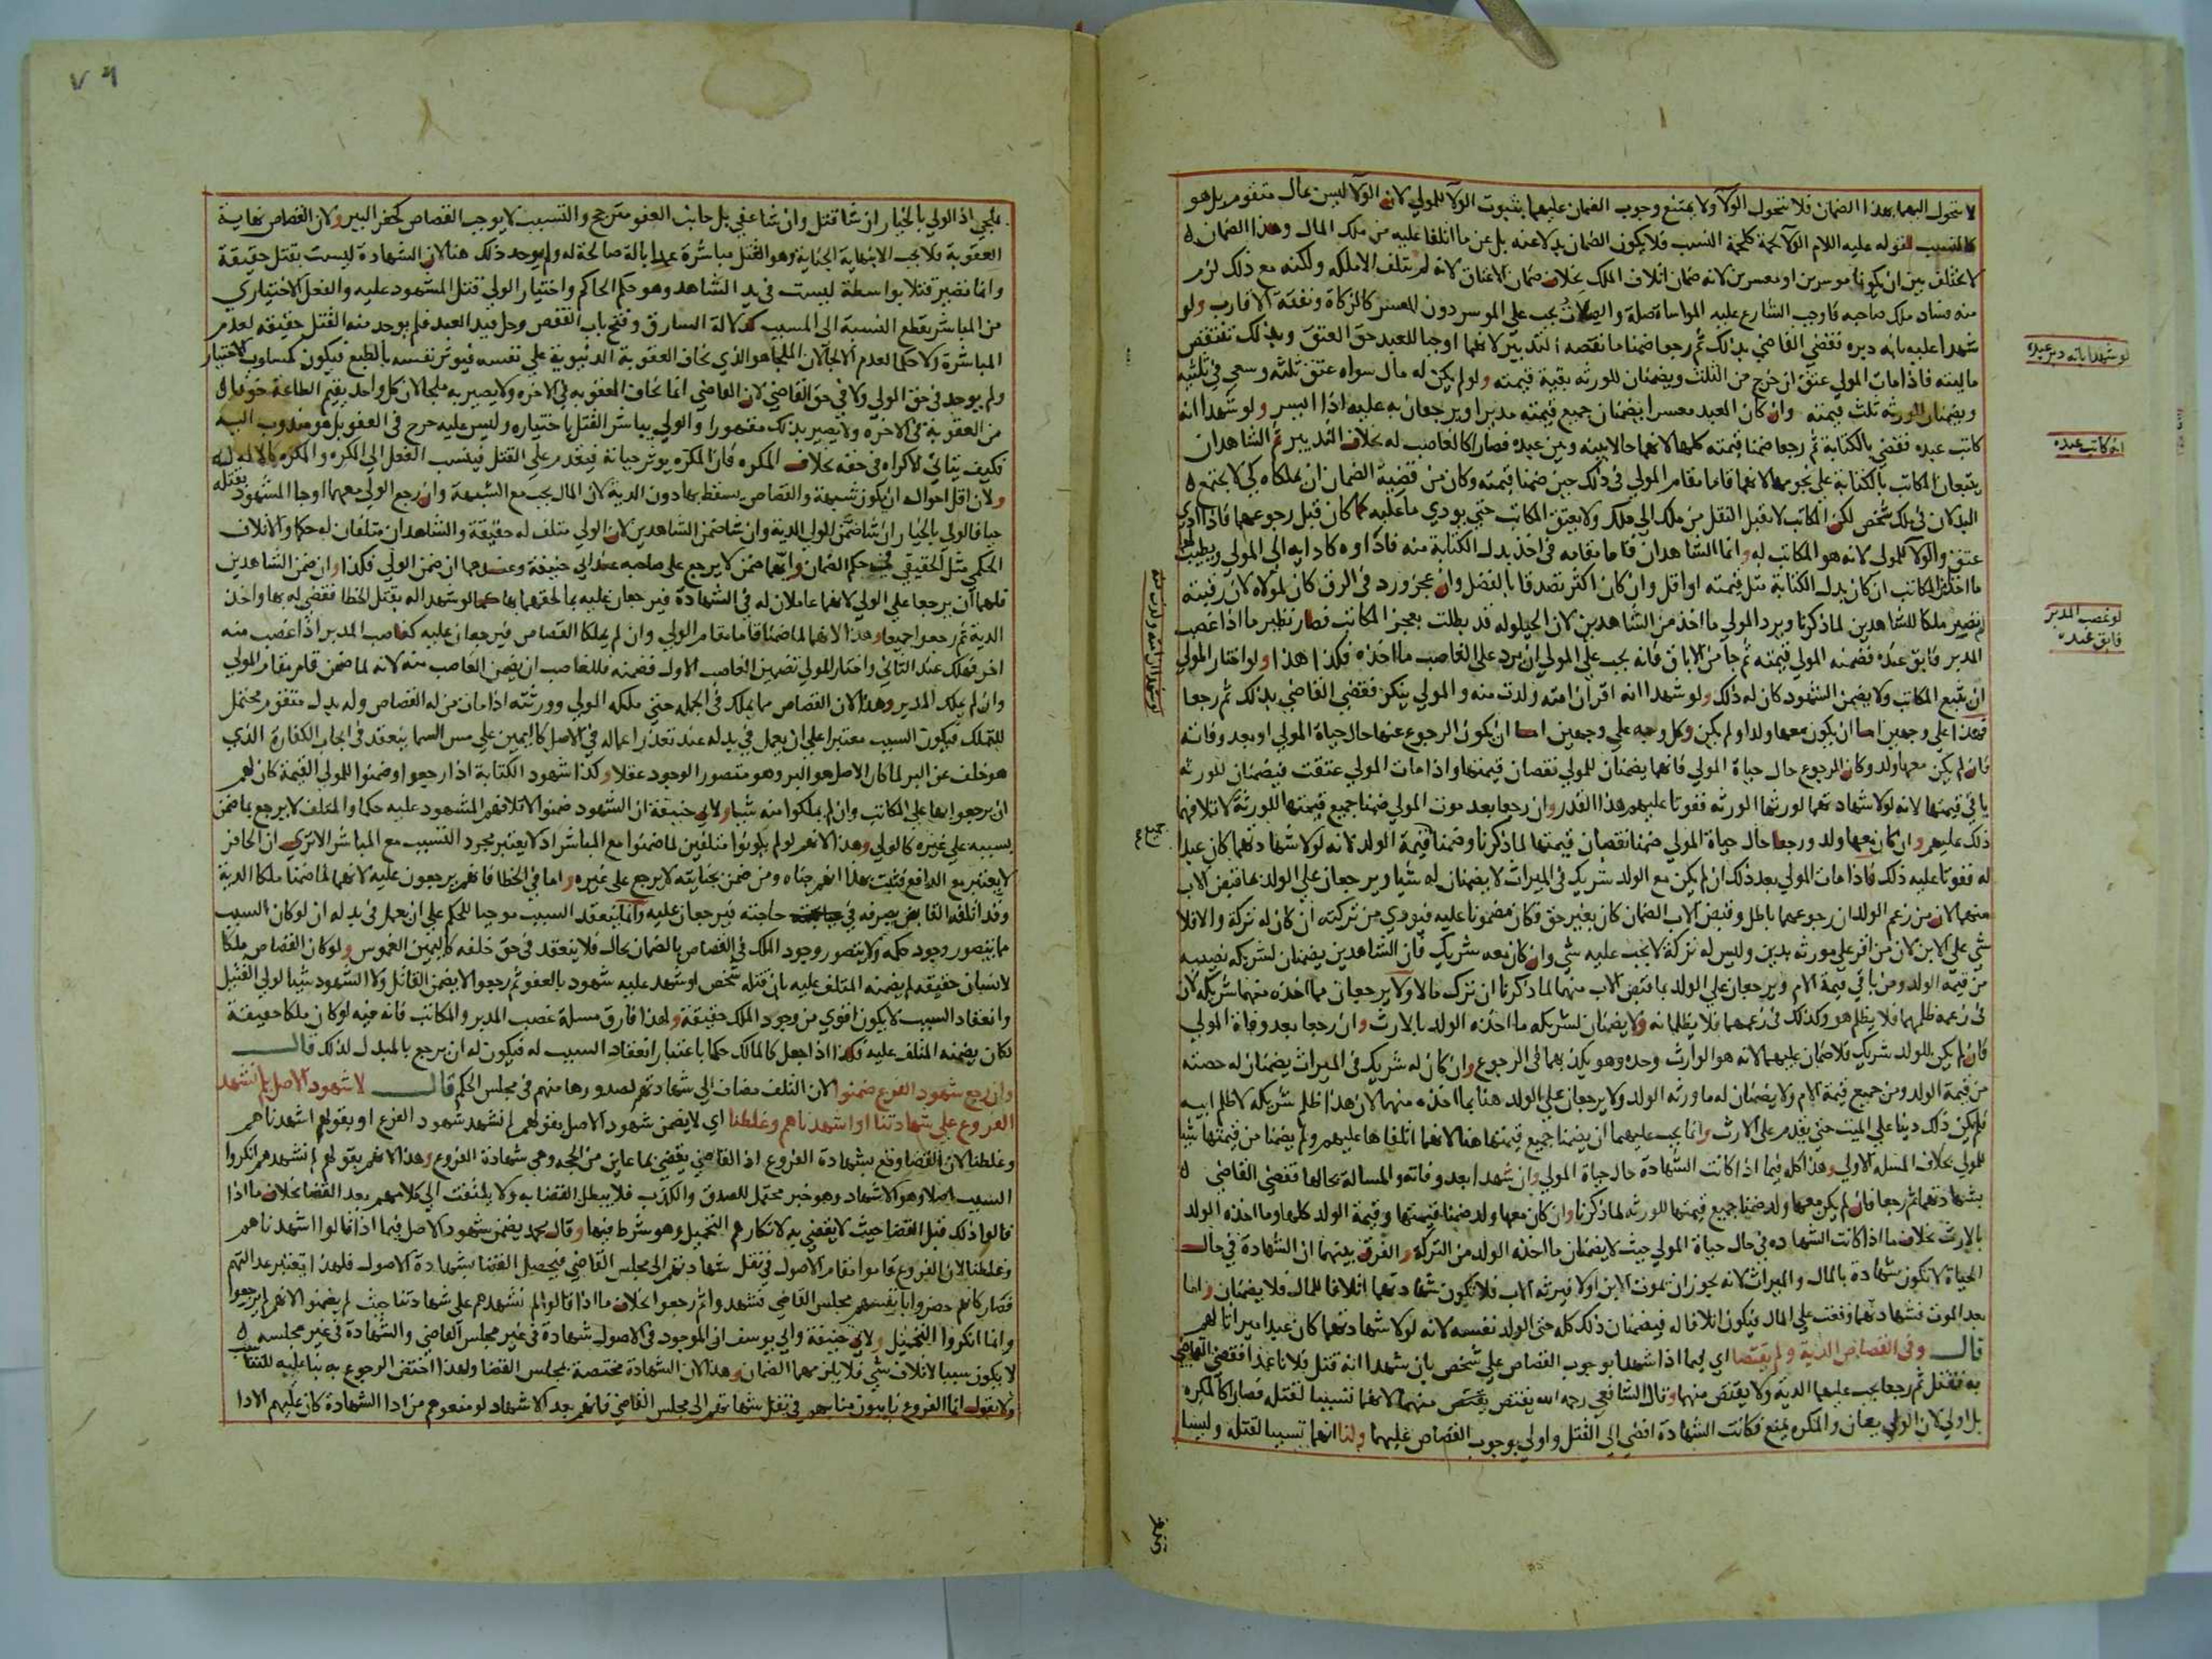 لا تتحول اليهما بهذا الضمان فلا تتحول الولآ ولا يمتنع وجوب الضمان عليهما بثبوت الولآ للمولي لان الولآ ليس بمال متقوم بل هو
كالنسب لقوله عليه السلام الولآ لحمة كلحمة النسب فلا يكون الضمان بدلا عنه بل عن ما اتلفا عليه من ملك المال وهذا الضمان
لا يختلف بين ان يكونا موسرين او معسرين لانه ضمان اتلاف الملك بخلاف ضمان الاعتاق لانه لم يتلف الا ملكه ولكنه مع ذلك لزم
منه فساد ملك صاحبه فاوجب الشارع عليه المواساة صلة والصلات تجب علي الموسر دون المعسر كالزكاة ونفقة الاقارب ولو
شهدا عليه بانه دبره فقضي القاضي بذلك ثم رجعا ضمنا ما نقصه التدبير لانهما اوجبا للعبد حق العتق وبذلك تنتقص
ماليته فاذا مات المولي عتق ان خرج من الثلث ويضمنان للورثه بقية قيمته ولو لم يكن له مال سواه عتق ثلثه وسعي في ثلثيه
ويضمنان للورثه ثلث قيمته وان كان العبد معسرا يضمنان جميع قيمته مدبرا ويرجعان به عليه اذا ايسر ولو شهدا انه
كاتب عبده فقضي بالكتابة ثم رجعا ضمنا قيمته كلها لانهما حالا بينه وبين عبده فصارا كالغاصب له بخلاف التدبير ثم الشاهدان
يتبعان المكاتب بالكتابة علي نجومها لانهما قاما مقام المولي في ذلك حين ضمنا قيمته وكان من قضية الضمان ان يملكاه كي لا يجتمع
البدلان في ملك شخص لكن المكاتب لا يقبل النقل من ملك الي ملك ولا يعتق المكاتب حتي يودي ما عليه كما كان قبل رجوعهما فاذا ادي
عتق والولآ للمولي لانه هو المكاتب له وانما الشاهدان قاما مقامه في اخذ بدل الكتابة منه فاداوه كادايه الي المولي ويطيب لهما
ما اخذا من المكاتب ان كان بدل الكتابة مثل قيمته او اقل وان كان اكثر تصدقا بالفضل وان عجز ورد في الرق كان لمولاه لان رقبته
لم تصير ملكا للشاهدين لما ذكرنا ويرد المولي ما اخذ من الشاهدين لان الحيلوله قد بطلت بعجز المكاتب فصار نظير ما اذا غصب
المدبر فابق عنده فضمنه المولي قيمته ثم جا من الاباق فانه يجب علي المولي ان يرد علي الغاصب ما اخذه فكذا هذا ولو اختار المولي
ان يتبع المكاتب ولا يضمن الشهود كان له ذلك ولو شهدا انه اقر ان امته ولدت منه والمولي ينكر فقضي القاضي بذلك ثم رجعا
فهذا علي وجهين اما ان يكون معها ولد او لم يكن وكل وجه علي وجهين اما ان يكون الرجوع عنها حال حياة المولي او بعد وفاته
فان لم يكن معها ولد وكان الرجوع حال حياة المولي فانهما يضمنان للمولي نقصان قيمتها واذا مات المولي عتقت فيضمنان للورثه
باقي قيمتها لانه لولا شهادتهما لورثها الورثه ففوتا عليهم هذا القدر وان رجعا بعد موت المولي ضمنا جميع قيمتها للورثة لاتلافهما
ذلك عليهم وان كان معها ولد ورجعا حال حياة المولي ضمنا نقصان قيمتها لما ذكرنا وضمنا قيمة الولد لانه لولا شهادتهما كان عبدا
له ففوتا عليه ذلك فاذا مات المولي بعد ذلك ان لم يكن مع الولد شريك في الميراث لا يضمنان له شيا ويرجعان علي الولد بما قبض الاب
منهما لان من زعم الولد ان رجوعهما باطل وقبض الاب الضمان كان بغير حق فكان مضمونا عليه فيودي من تركته ان كان له تركة والا فلا
شي علي الابن لان من اقر علي مورثه بدين وليس له تركة لا يجب عليه شي وان كان معه شريك فان الشاهدين يضمنان لشريكه نصيبه
من قيمة الولد ومن باقي قيمة الام ويرجعان علي الولد بما قبض الاب منهما لما ذكرنا ان ترك مالا ولا يرجعان بما اخذه منهما شريكه لان
في زعمه ظلمهما فلا يظلم هو وكذلك في زعمهما فلا يظلمانه ولا يضمنان لشريكه ما اخذه الولد بالارث وان رجعا بعد وفاة المولي
فان لم يكن للولد شريك فلا ضمان عليهما لانه هو الوارث وحده وهو يكذبهما في الرجوع وان كان له شريك في الميراث يضمنان له حصته
من قيمة الولد ومن جميع قيمة الام ولا يضمنان له ما ورثه الولد ولا يرجعان علي الولد هنا بما اخذه منهما لان هذا ظلم شريكه لا ظلم ابيه
فلم يكن ذلك دينا علي الميت حتي يقدم علي الارث وانما يجب عليهما ان يضمنا جميع قيمتها هنا لانهما اتلفاها عليهم ولم يضمنا من قيمتها شيا
للمولي بخلاف المسلة الاولي وهذا كله فيما اذا كانت الشهادة حال حياة المولي وان شهدا بعد وفاته والمسالة بحالها فقضي القاضي
بشهادتهما ثم رجعا فان لم يكن معها ولد ضمنا جميع قيمتها للورثه لما ذكرنا وان كان معها ولد ضمنا قيمتها وقيمة الولد كلها وما اخذه الولد
بالارث بخلاف ما اذا كانت الشهاده في حال حياة المولي حيث لا يضمنان ما اخذه الولد من التركة والفرق بينهما ان الشهادة في حال
الحياة لا تكون شهادة بالمال والميراث لانه يجوز ان يموت الابن اولا فيرثه الاب فلا تكون شهادتهما اتلافا للمال فلا يضمنان واما
بعد الموت فشهادتهما وقعت علي المال فيكون اتلافا له فيضمنان ذلك كله حتي الولد نفسه لانه لولا شهادتهما كان عبدا ميراثا لهم
قال وفي القصاص الدية ولم يقتصا اي فيما اذا شهدا بوجوب القصاص علي شخص بان شهدا انه قتل فلانا عمدا فقضي القاضي
به فقتل ثم رجعا يجب عليهما الدية ولا يقتص منهما وقال الشافعي رحمه الله يقتص يقتص منهما لانهما تسببا لقتله فصارا كالمكره
بل اولي لان الولي يعان والمكره يمنع فكانت الشهادة افضي الي القتل واولي بوجوب القصاص عليهما ولنا انهما تسببا لقتله وليسا
لو شهدا بانه دبر عبده
انه كاتب عبده
لو غصب المدبر
فابق عنده
٧٦
ملجي اذ الولي بالخيار ان شا قتل وان شا عفي بل جانب العفو مترجح والتسبب لا يوجب القصاص كحفر البير ولان القصاص نهاية
العقوبة فلا يجب الا بنهاية الجناية وهو القتل مباشرة عمدا بالة صالحة له ولم يوجد ذلك هنا لان الشهادة ليست بقتل حقيقة
وانما تصير قتلا بواسطة ليست في يد الشاهد وهو حكم الحاكم واختيار الولي قتل المشهود عليه والفعل الاختياري
من المباشر يقطع النسبة الي المسبب كدلالة السارق وفتح باب القفص وحل قيد العبد فلم يوجد منه القتل حقيقه لعدم
المباشرة ولا حكما لعدم الالجا لان الملجا هو الذي يخاف العقوبة الدنيوية علي نفسه فيوثر نفسه بالطبع فيكون كمسلوب الاختيار
ولم يوجد في حق الولي ولا في حق القاضي لان القاضي انما يخاف العقوبه في الاخره ولا يصير به ملجا لان كل واحد يقيم الطاعة خوفا
من العقوبة في الاخره ولا يصير بذلك مقهورا والولي يباشر القتل باختياره وليس عليه حرج في العفو بل هو مندوب اليه
فكيف يتاتي الاكراه في حقه بخلاف المكره فان المكره يوثر حياته فيقدم علي القتل فينسب الفعل الي المكره والمكره كالالة له
ولان اقل احواله ان يكون شبهة والقصاص يسقط بها دون الدية لان المال يجب مع الشبهة وان رجع الولي معهما او جا المشهود بقتله
حيا فالولي بالخيار ان شا ضمن الولي الدية وان شا ضمن الشاهدين لان الولي متلف له حقيقة والشاهدان متلفان له حكما والاتلاف
الحكمي مثل الحقيقي في حكم الضمان وايهما ضمن لا يرجع علي صاحبه عند ابي حنيفة وعندهما ان ضمن الولي فكذا وان ضمن الشاهدين
فلهما ان يرجعا علي الولي لانهما عاملان له في الشهادة فيرجعان عليه بما لحقهما بها كما لو شهدا له بقتل الخطا فقضي له بها واخذ
الدية ثم رجعوا جميعا وهذا لانهما لما ضمنا قاما مقام الولي وان لم يملكا القصاص فيرجعان عليه كغاصب المدبر اذا غصب منه
اخر فهلك عند الثاني واختار المولي تضمين الغاصب الاول فضمنه فللغاصب ان يضمن الغاصب منه لانه لما ضمن قام مقام المولي
وان لم يملك المدبر وهذا لان القصاص مما يملك في الجمله حتي ملكه المولي وورثته اذا مات من له القصاص وله بدل متقوم محتمل
للتملك فيكون السبب معتبرا علي ان يعمل في بدله عند تعذر اعماله في الاصل كاليمين علي مس السما ينعقد في ايجاب الكفارة الذي
هو خلف عن البر لما كان الاصل هو البر وهو متصور الوجود عقلا وكذا شهود الكتابة اذا رجعوا وضمنوا للمولي القيمة كان لهم
ان يرجعوا بها علي المكاتب وان لم يملكوا منه شيا ولابي حنيفة ان الشهود ضمنوا لاتلافهم المشهود عليه حكما والمتلف لا يرجع بما ضمن
بسببه علي غيره كالولي وهذا لانهم لو لم يكونوا متلفين لما ضمنوا مع المباشر اذ لا يعتبر مجرد التسبب مع المباشر الا تري ان الحافر
لا يعتبر مع الدافع فثبت بهذا انهم جناه ومن ضمن بجنايته لا يرجع علي غيره واما في الخطا فانهم يرجعون عليه لانهما لما ضمنا ملكا الدية
وقد اتلفه القابض بصرفه في حاجته فيرجعان عليه وانما ينعقد السبب موجبا للحكم علي ان يعمل في بدله ان لو كان السبب
ما يتصور وجود حكمه ولا يتصور وجود الملك في القصاص بالضمان بحال فلا ينعقد في حق خلفه كاليمين الغموس ولو كان القصاص ملكا
لانسان حقيقه لم يضمنه المتلف عليه بان قتله شخص او شهد عليه شهود بالعفو ثم رجعوا لا يضمن القاتل ولا الشهود شيا لولي القتيل
وانعقاد السبب لا يكون اقوي من وجود الملك حقيقة ولهذا فارق مسلة غصب المدبر والمكاتب فانه فيه لو كان ملكا حقيقة
لكان يضمنه المتلف عليه فكذا اذا جعل كالمالك حكما باعتبار انعقاد السبب له فيكون له ان يرجع بالمبدل لذلك قال
وان رجع شهود الفرع ضمنوا لان التلف مضاف الي شهادتهم لصدورها منهم في مجلس الحكم قال لا شهود الاصل بلم نشهد
الفروع علي شهادتنا او اشهدناهم وغلطنا اي لا يضمن شهود الاصل بقولهم لم نشهد شهود الفرع او بقولهم اشهدناهم
وغلطنا لان القضا وقع بشهادة الفروع اذ القاضي يقضي بما عاين من الحجه وهي شهادة الفروع وهذا لانهم بقولهم لم نشهدهم انكروا
السبب اصلا وهو الاشهاد وهو خبر محتمل للصدق والكذب فلا يبطل القضا به ولا يلتفت الي كلامهم بعد القضا بخلاف ما اذا
قالوا ذلك قبل القضا حيث لا يقضي به لانكارهم التحميل وهو شرط فيها وقال محمد يضمن شهود الاصل فيما اذا قالوا اشهدناهم
وغلطنا لان الفروع قاموا مقام الاصول في نقل شهادتهم الي مجلس القاضي فيحصل القضا بشهادة الاصول فلهذا تعتبر عدالتهم
فصار كانهم حضروا بانفسهم مجلس القاضي فشهدوا ثم رجعوا بخلاف ما اذا قالوا لم نشهدهم علي شهادتنا حيث لم يضمنوا لانهم لم يرجعوا
وانما انكروا التحميل ولابي حنيفة وابي يوسف ان الموجود في الاصول شهادة في غير مجلس القاضي والشهادة في غير مجلسه
لا يكون سببا لاتلاف شي فلا يلزمهما الضمان وهذا لان الشهادة مختصة بمجلس القضا ولهذا اختص الرجوع به
ولا نقول انما الفروع نايبون منابهم في نقل شهادتهم الي مجلس القاضي فانهم بعد الاشهاد لو منعوهم من ادا الشهادة كان عليهم الادا